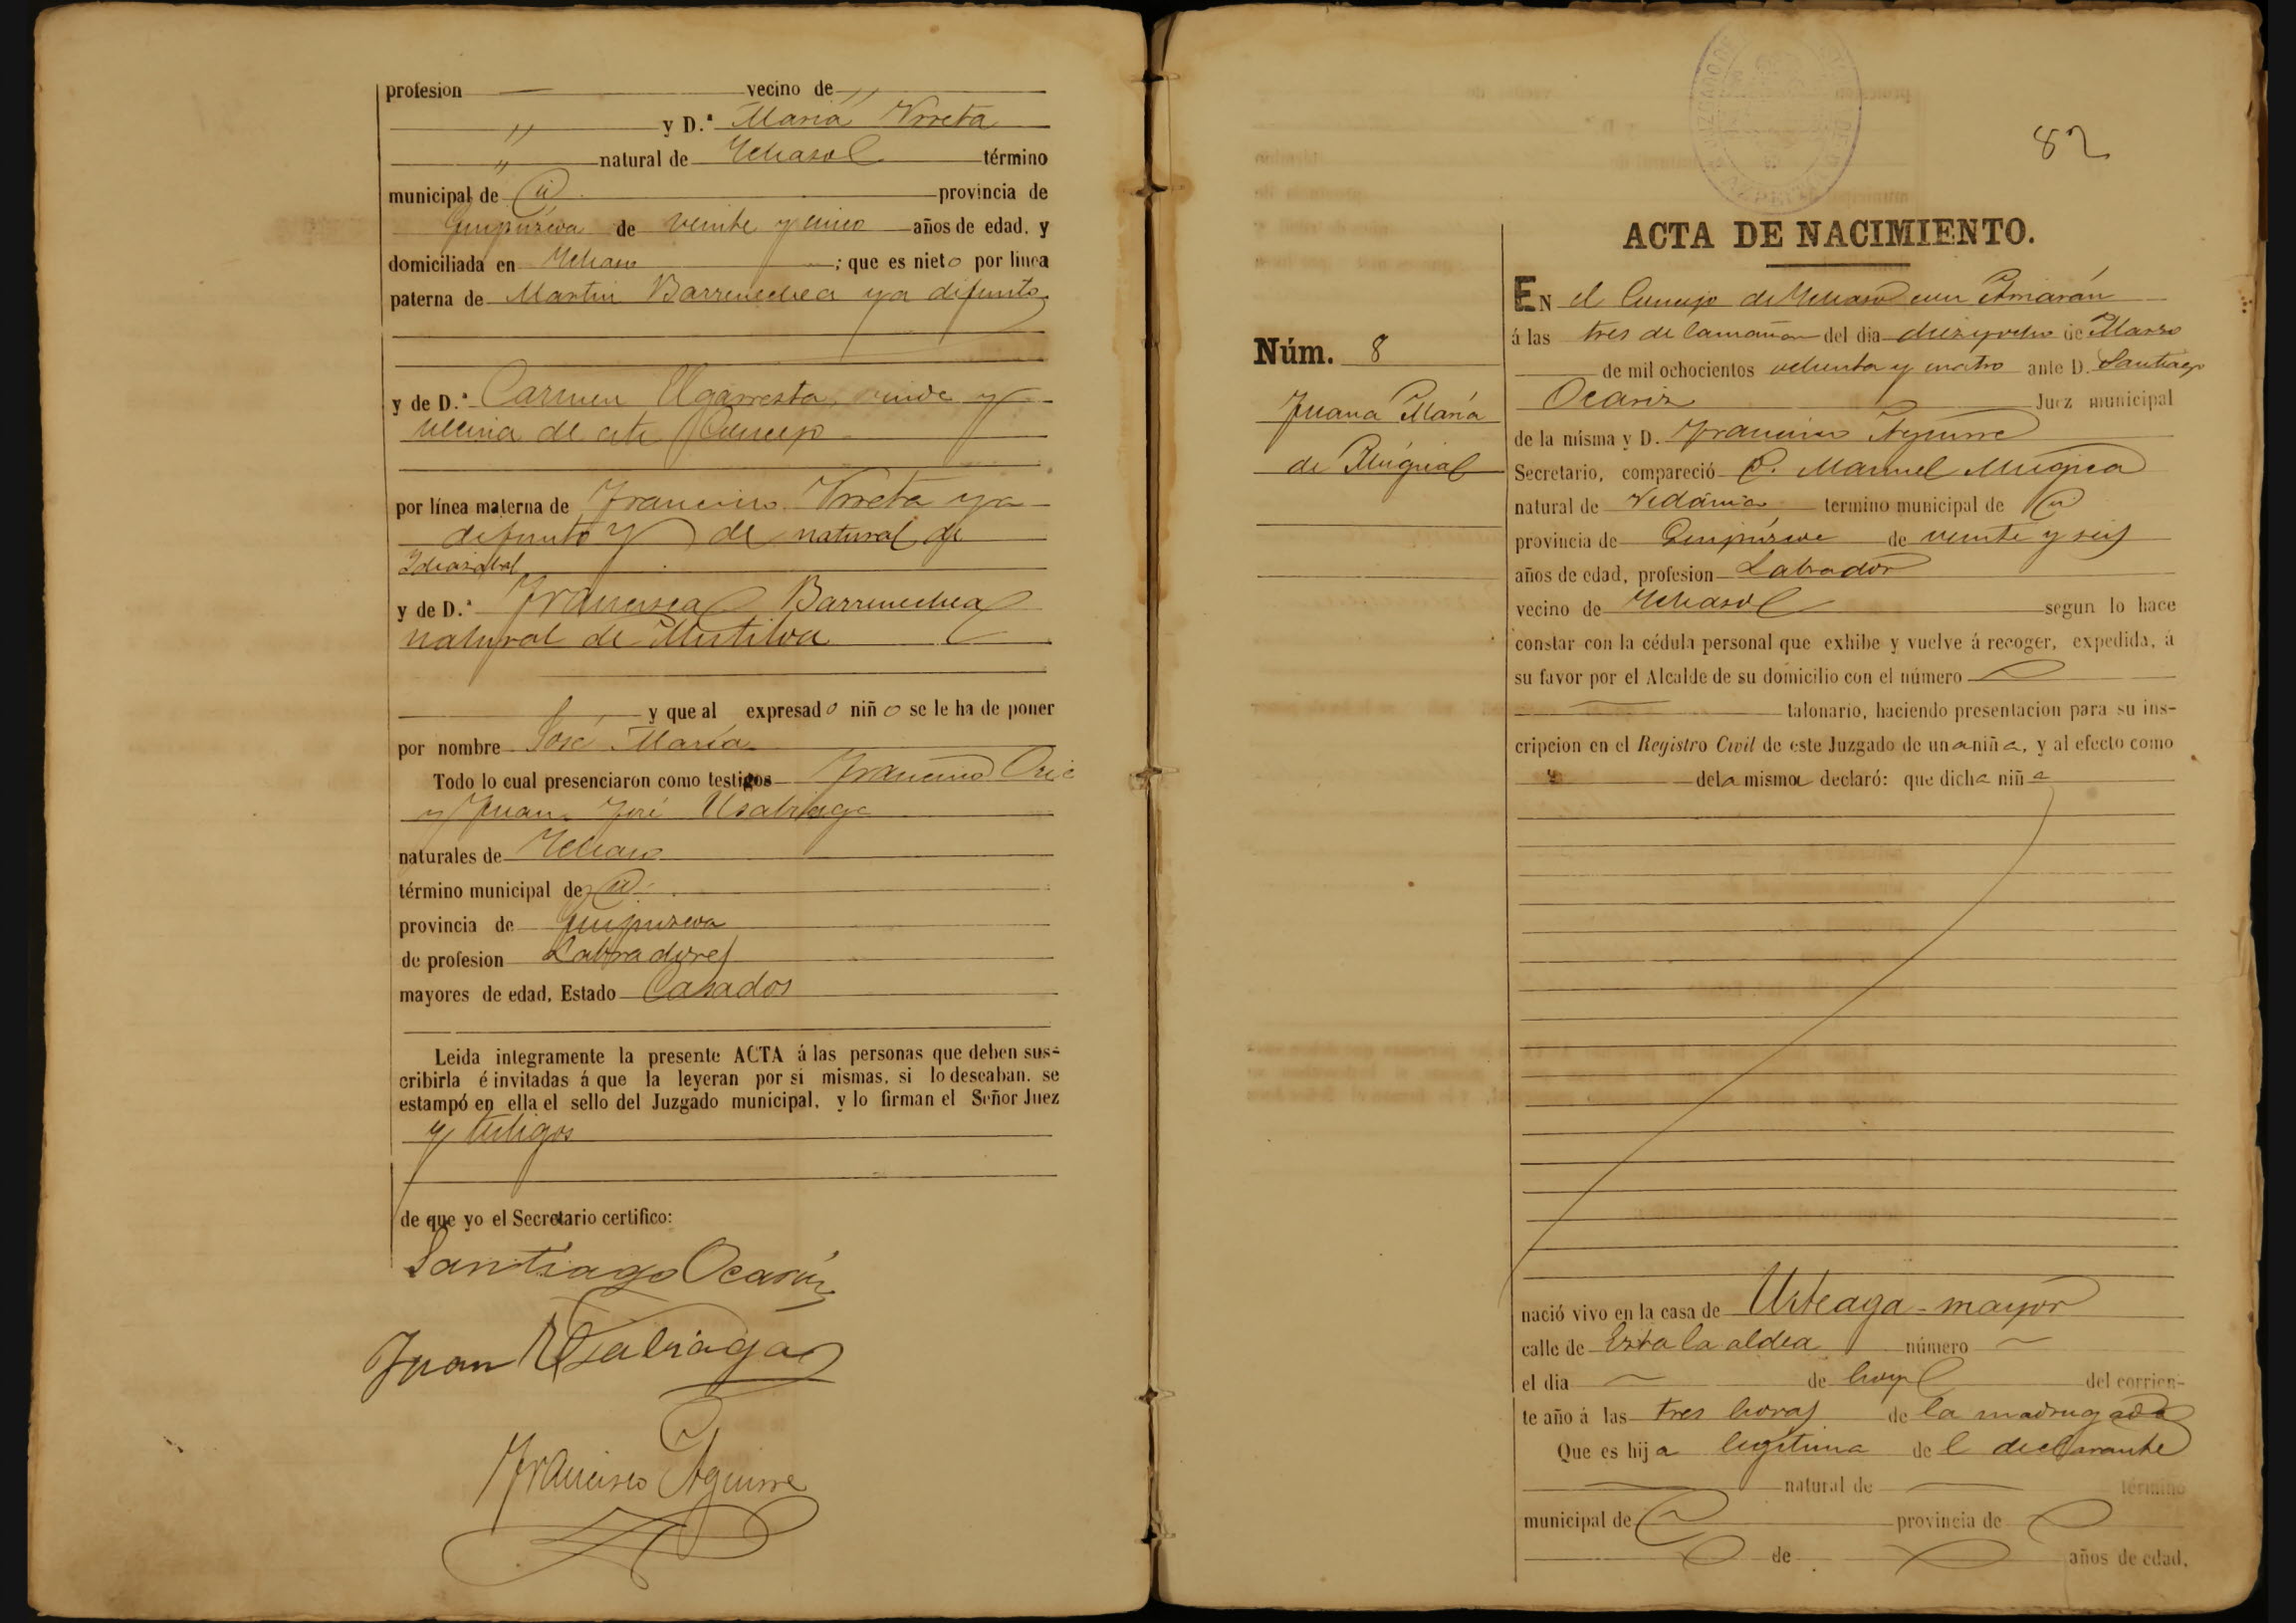 profesion — vecino de "
" y D.ª María Urreta
" natural de Ychaso término
municipal de id. provincia de
Guipúzcoa de veinte y cinco años de edad, y
domiciliada en Ychaso ; que es nieto por linea
paterna de Martin Barrenechea ya difunto
y de D.ª Carmen viuda y
vecina de este Concejo
por línea materna de Francisco Urreta ya
difunto y de natural de
Idiazabal
y de D.ª Francisca Barrenechea
natural de Mutiloa
y que al expresado niño se le ha de poner
por nombre José María
Todo lo cual presenciaron como testigos Francisco
y Juan José Usabiaga
naturales de Ychaso
término municipal de id.
provincia de Guipuzcoa
de profesion Labradores
mayores de edad, Estado Casados
Leida integramente la presente ACTA á las personas que deben sus-
cribirla é invitadas á que la leyeran por si mismas, si lo deseaban, se
estampó en ella el sello del Juzgado municipal, y lo firman el Señor Juez
y testigos
de que yo el Secretario certifico:
Santiago Ocariz
Juan Usabiaga
Francisco Aguirre
82
ACTA DE NACIMIENTO.
Núm. 8
Juana María
de Múgica
EN el Concejo de Ychaso en Arriarán
á las tres de la mañana del dia diez y ocho de Marzo
de mil ochocientos ochenta y cuatro ante D. Santiago
Ocariz Juez municipal
de la misma y D. Francisco Aguirre
Secretario, compareció D. Manuel Mugica
natural de Vidania termino municipal de id
provincia de Guipúzcoa de veinte y seis
años de edad, profesion Labrador
vecino de Ychaso segun lo hace
constar con la cédula personal que exhibe y vuelve á recoger, expedida, á
su favor por el Alcalde de su domicilio con el número —
— talonario, haciendo presentacion para su ins-
cripcion en el Registro Civil de este Juzgado de una niña, y al efecto como
" de la misma declaró: que dicha niña
nació vivo en la casa de Urteaga-mayor
calle de Esta la aldea número —
el dia — de hoy del corrien-
te año á las tres horas de la madrugada
Que es hija legítima de l declarante
— natural de — término
municipal de — provincia de —
— de — años de edad,